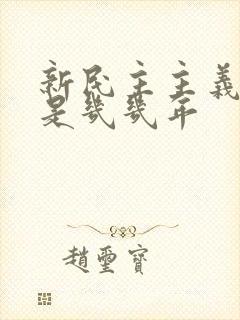 新民主主義
是幾幾年
趙璽寶